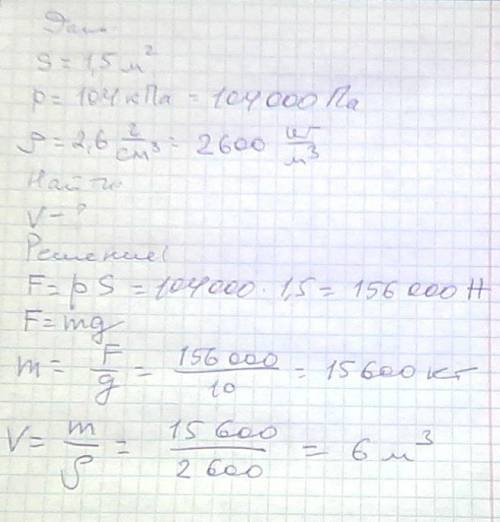 Дано
S = 1,5 м²
p = 104 кПа = 104000 Па
ρ = 2,6 г/см³ = 2600 кг/м³
Найти
V - ?
Решение:
F = pS = 104000 · 1,5 = 156000 Н
F = mg
m = F/g = 156000/10 = 15600 кг
V = m/ρ = 15600/2600 = 6 м³